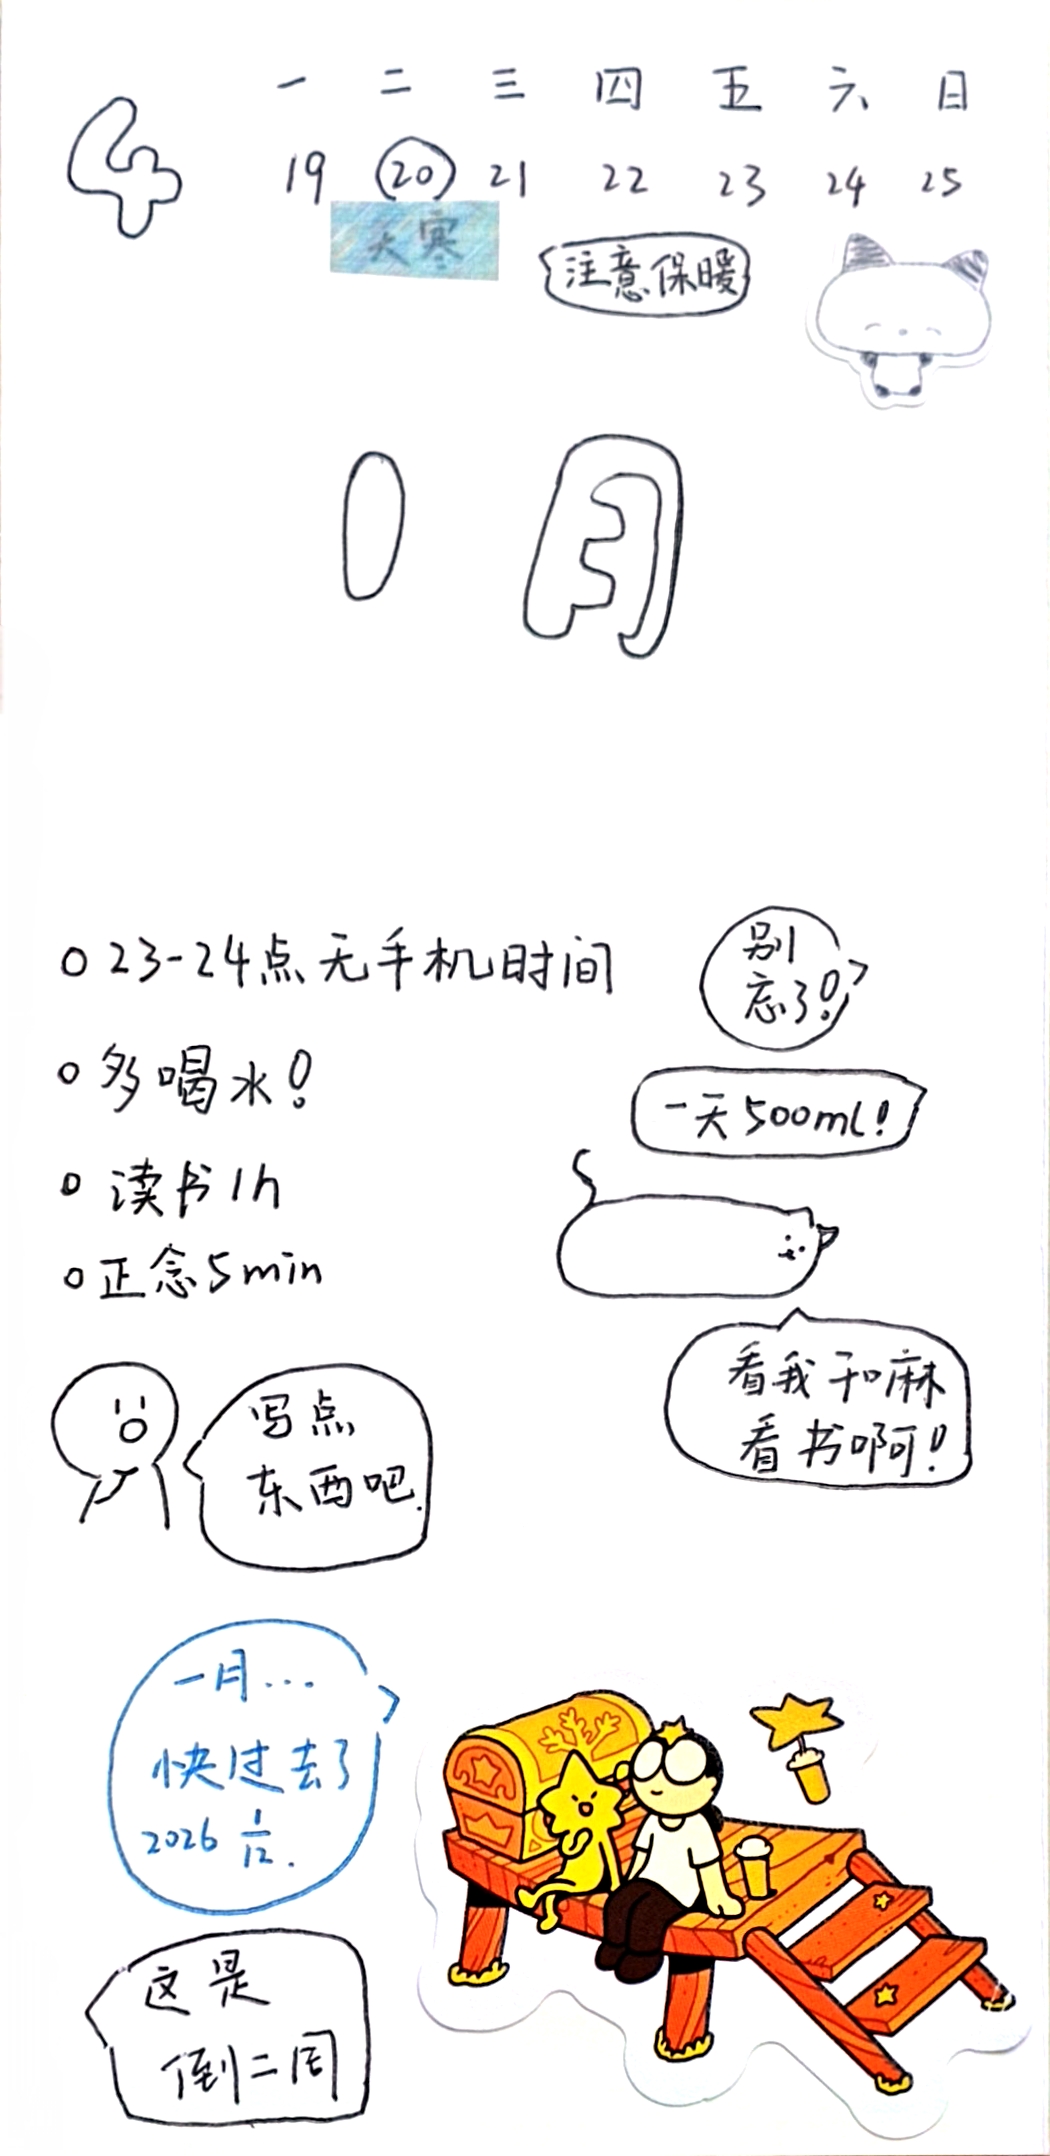 4
一 二 三 四 五 六 日
19 20 21 22 23 24 25
大寒
注意保暖
1月
23-24点无手机时间
别
忘了!
多喝水!
一天500ml!
读书1h
正念5min
看我干嘛
看书啊!
写点
东西吧.
一月...
快过去了
2026 1/12.
这是
倒二周